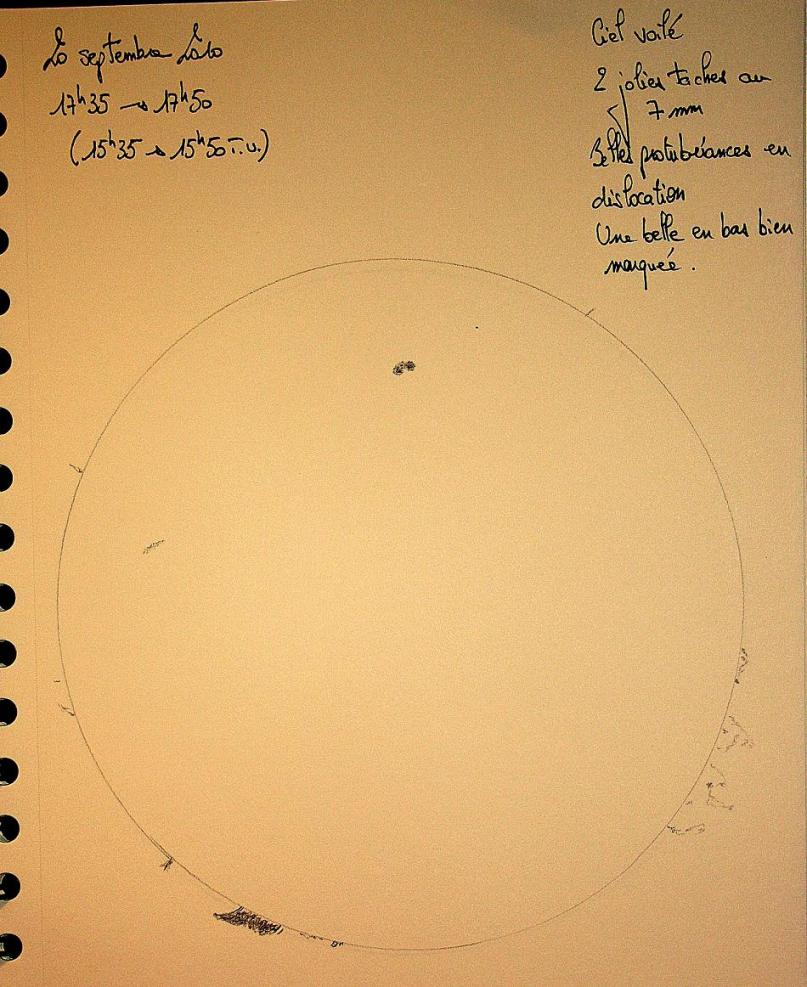 20 septembre 2010
17h35 → 17h50
(15h35 → 15h50 T.U.)
Ciel voilé
2 jolies taches au
7 mm
Belles protubérances en
dislocation
Une belle en bas bien
marquée.